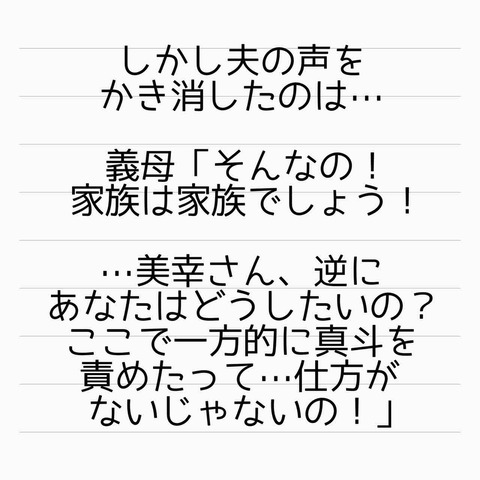 しかし夫の声を
かき消したのは…
義母「そんなの！
家族は家族でしょう！
…美幸さん、逆に
あなたはどうしたいの？
ここで一方的に真斗を
責めたって…仕方が
ないじゃないの！」